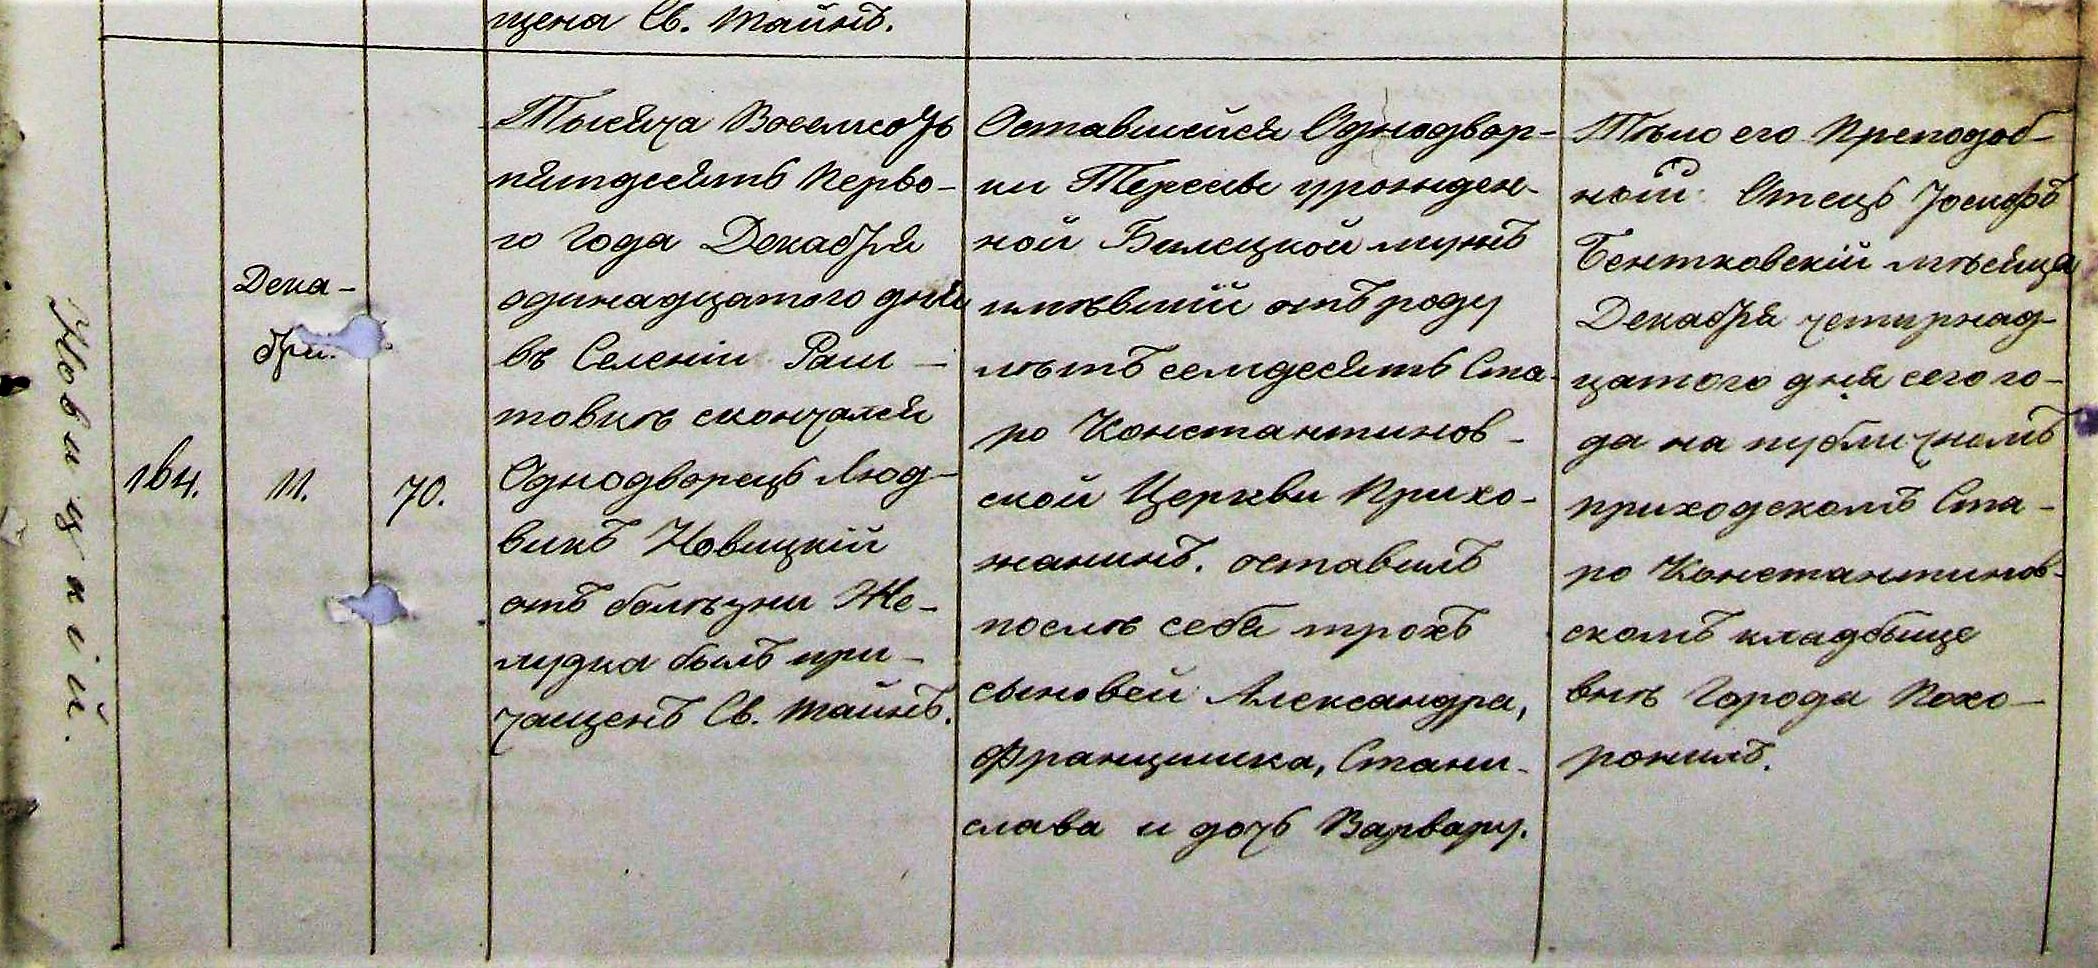 щена Св. Тайнъ.
Новицкій.
164.
Дека-
бря.
11.
70.
Тысяча Восемсотъ
пятдесятъ Перво-
го Года Декабря
одинадцатого дня
въ Селеніи Раш-
товкѣ скончался
Однодворецъ Люд-
викъ Новицкій
отъ болѣзни Же-
лудка былъ при-
чащенъ Св. Тайнъ.
Оставшейся Однодвор-
ки Терессы урожден-
ной Билецкой мужъ
имѣвшій отъ роду
лѣтъ семдесятъ Ста-
ро Константинов-
ской Церкви Прихо-
жанинъ. оставилъ
послѣ себя трохъ
сыновей Александра,
Францишка, Стани-
слава и дочь Варвару.
Тѣло его Преподоб-
ный Отецъ Іосифъ
Бентковскій мѣсяца
Декабря четырнад-
цатого дня сего го-
да на публичномъ
приходскомъ Ста-
ро Константинов-
скомъ кладбыще
внѣ Города Похо-
ронилъ.